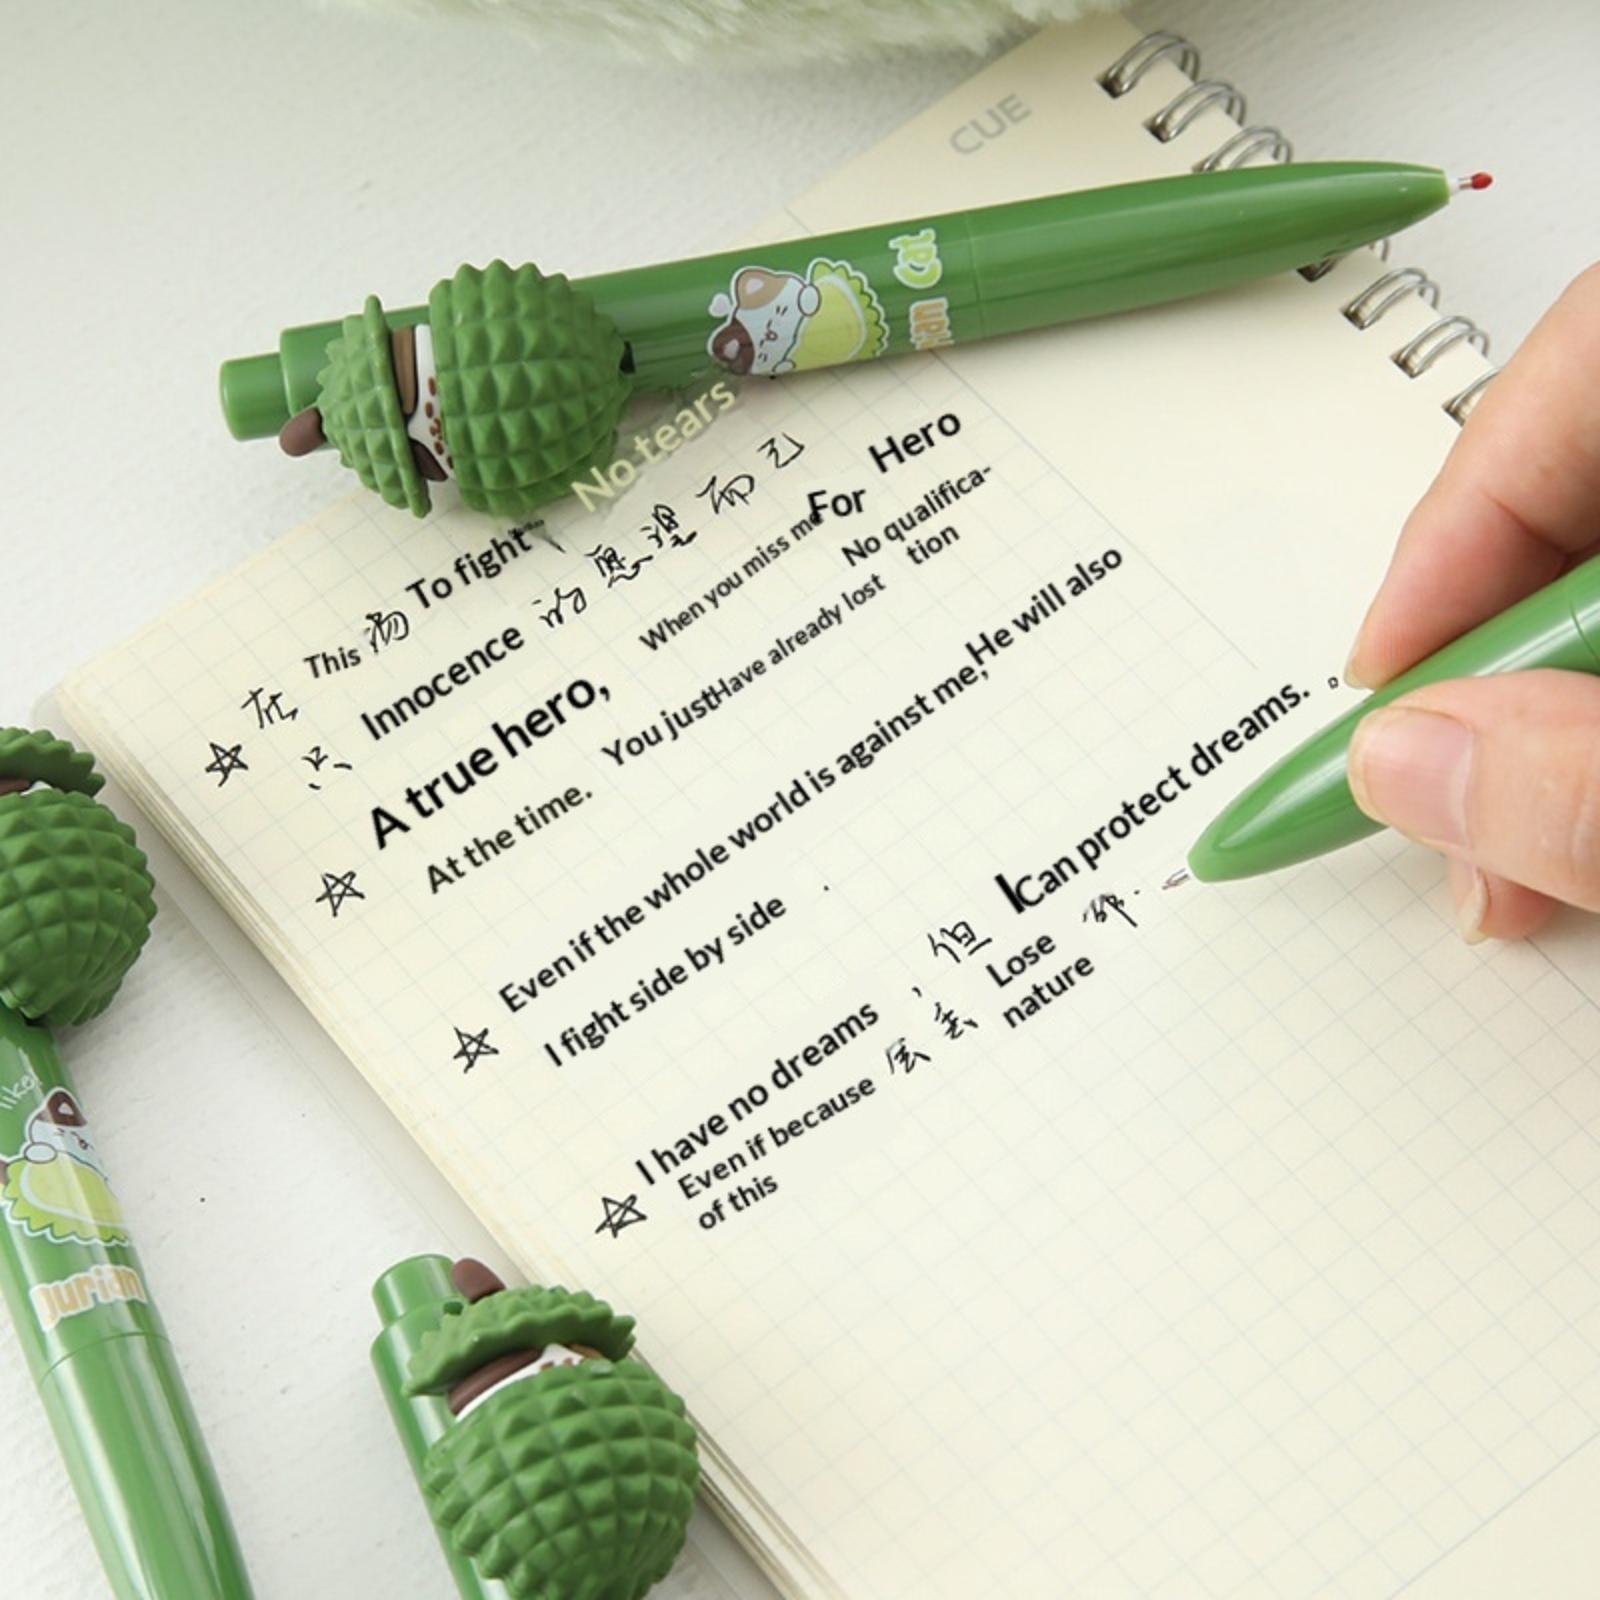 CUE
Cat
urian
No tears
在 This To fight
只 Innocence 的愿望而已
A true hero, When you miss me For Hero
At the time. You just Have already lost No qualifica-
tion
Even if the whole world is against me, He will also
I fight side by side
I have no dreams , 但 I Can protect dreams. 。
Even if because Lose 却
of this nature
like
Durian